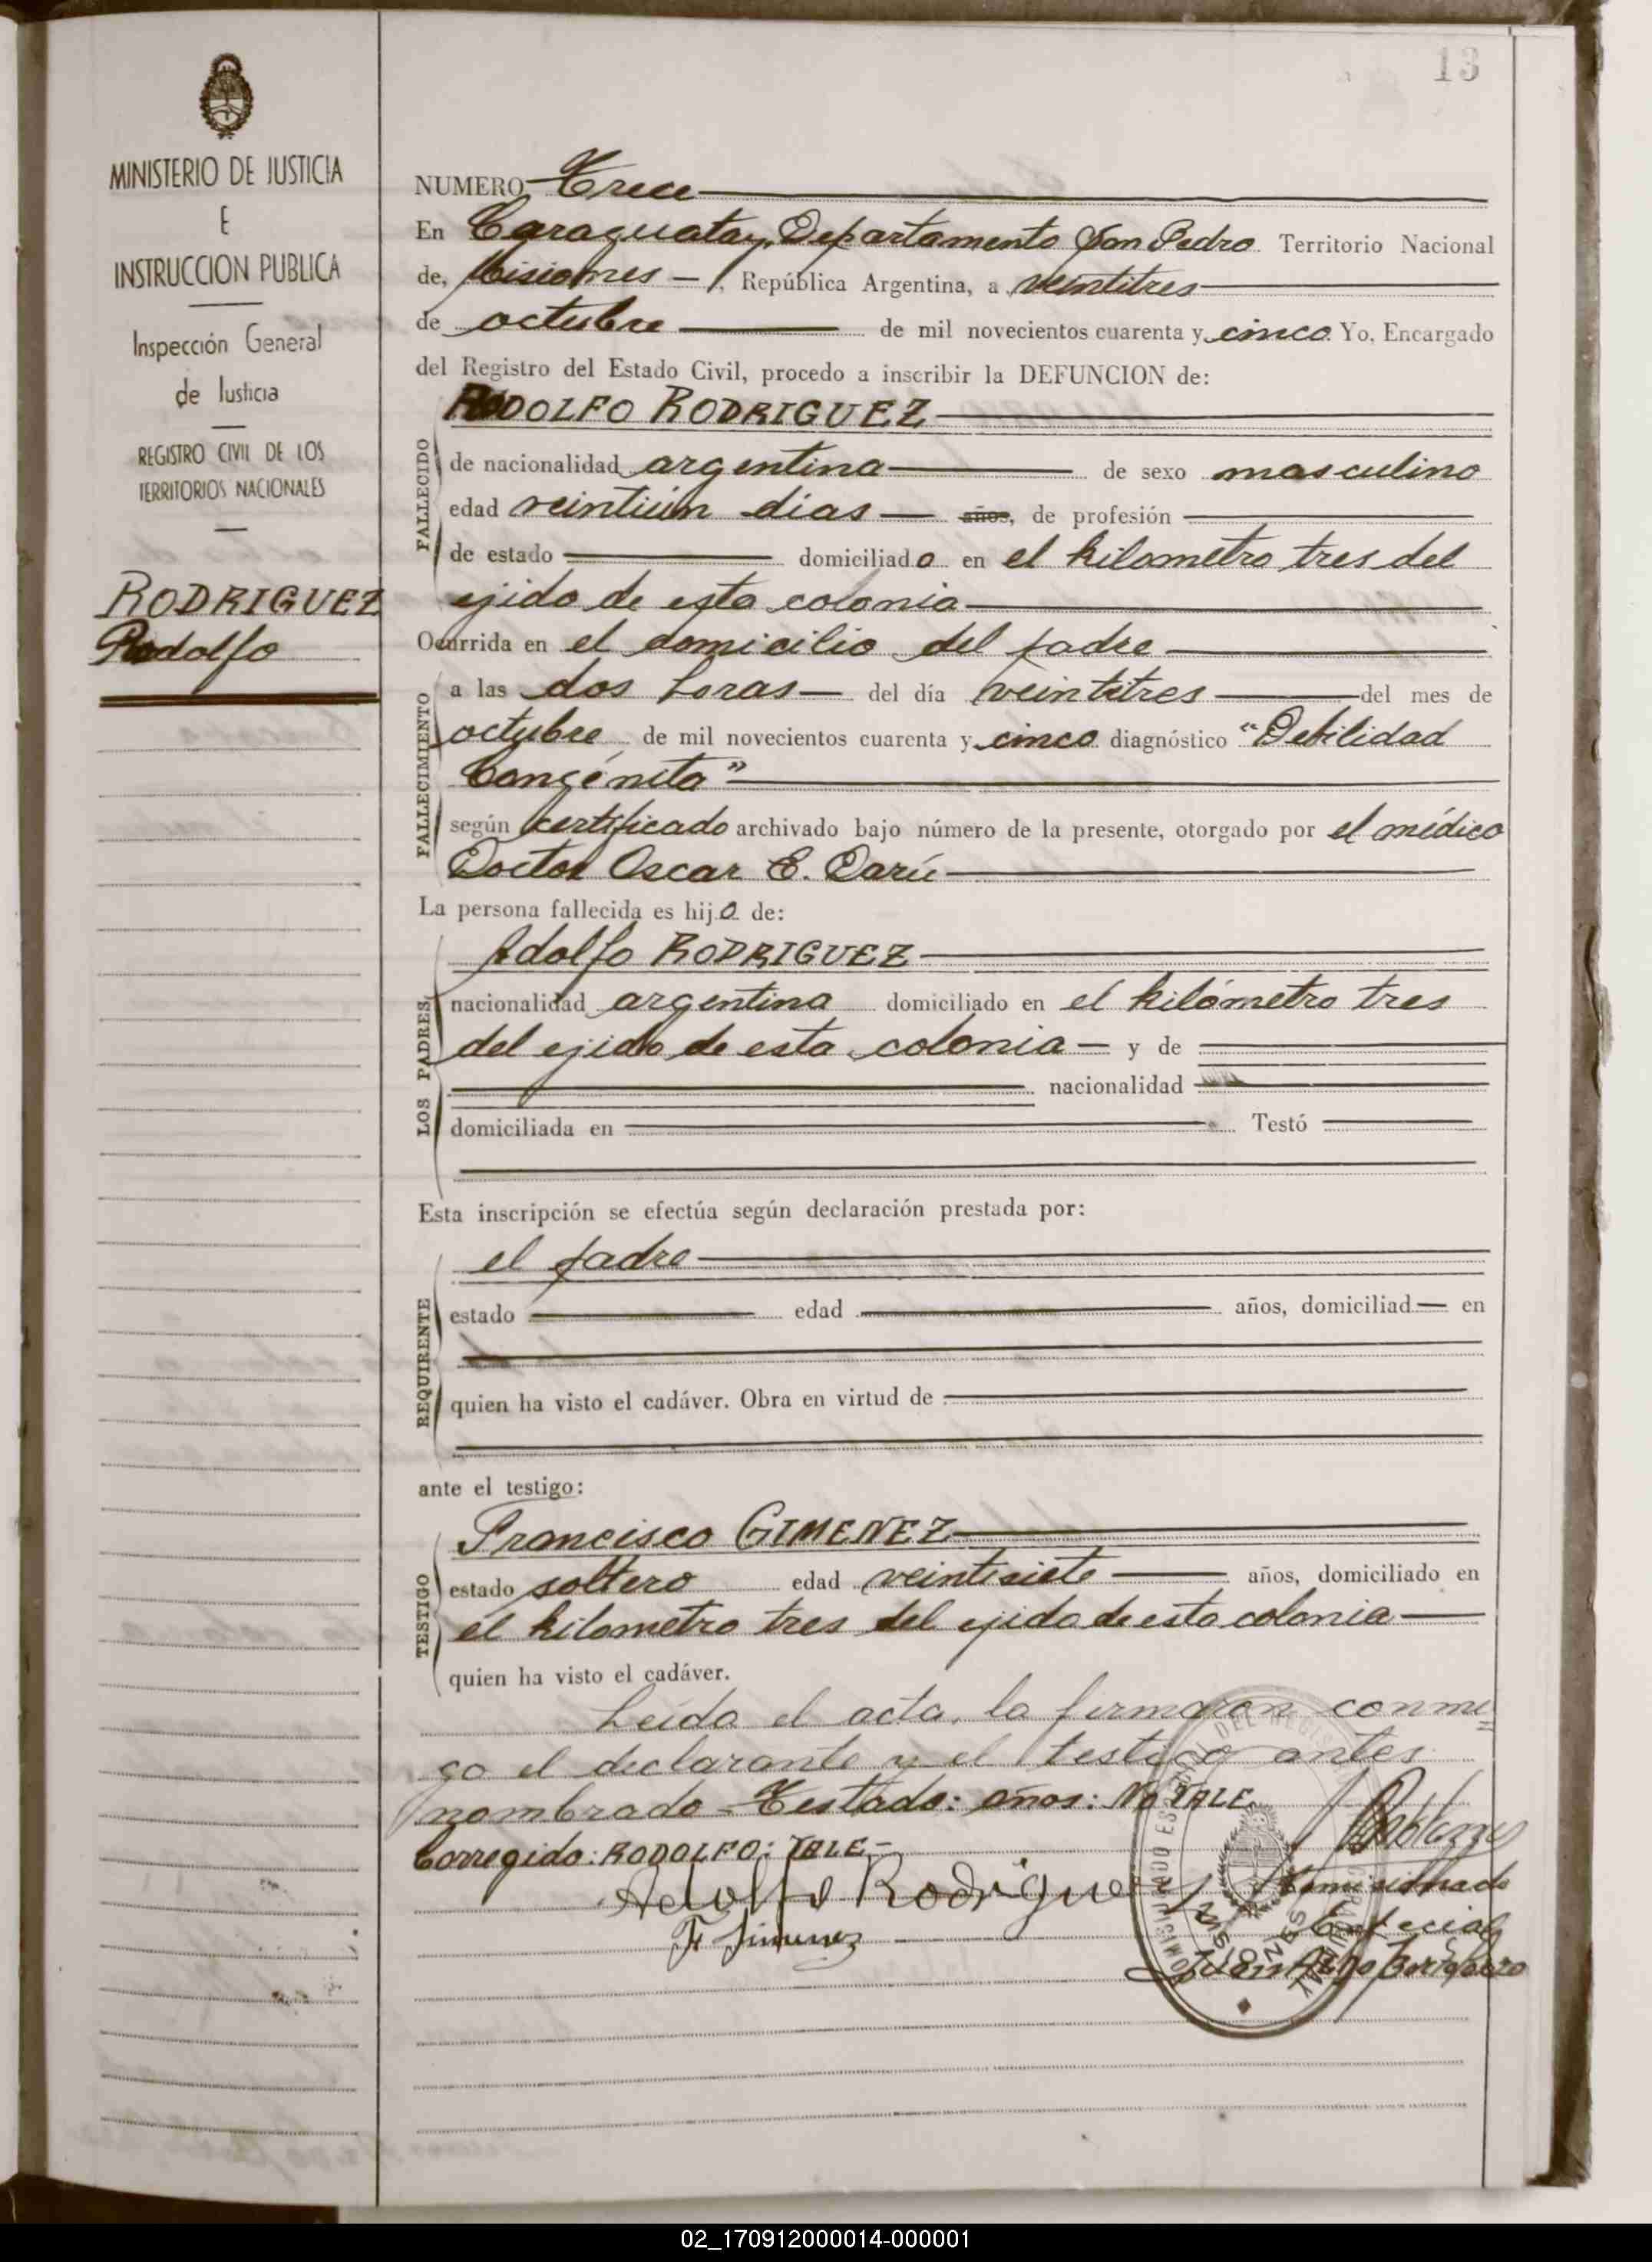 13
MINISTERIO DE JUSTICIA
E
INSTRUCCION PUBLICA
Inspección General
de Justicia
REGISTRO CIVIL DE LOS
TERRITORIOS NACIONALES
RODRIGUEZ
Rodolfo
NUMERO Trece
En Caraguatay, Departamento San Pedro Territorio Nacional
de, Misiones - , República Argentina, a veintitres
de octubre de mil novecientos cuarenta y cinco Yo, Encargado
del Registro del Estado Civil, procedo a inscribir la DEFUNCION de:
RODOLFO RODRIGUEZ
FALLECIDO
de nacionalidad argentina de sexo masculino
edad veintiún dias años, de profesión
de estado domiciliado en el kilometro tres del
ejido de esta colonia
Ocurrida en el domicilio del padre
FALLECIMIENTO
a las dos horas del día veintitres del mes de
octubre de mil novecientos cuarenta y cinco diagnóstico "Debilidad
Congénita"
según certificado archivado bajo número de la presente, otorgado por el médico
Doctor Oscar E. Darú
La persona fallecida es hijo de:
LOS PADRES
Adolfo RODRIGUEZ
nacionalidad argentina domiciliado en el kilómetro tres
del ejido de esta colonia - y de
nacionalidad
domiciliada en Testó
Esta inscripción se efectúa según declaración prestada por:
REQUIRENTE
el padre
estado edad años, domiciliad en
quien ha visto el cadáver. Obra en virtud de
ante el testigo:
TESTIGO
Francisco GIMENEZ
estado soltero edad veintisiete años, domiciliado en
el kilometro tres del ejido de esta colonia
quien ha visto el cadáver.
Leída el acta, la firmaron conmi=
go el declarante y el testigo antes
nombrado - Testado: años: NO VALE
Corregido: RODOLFO: VALE -
Adolfo Rodriguez
F Jimenez
Comisionado
Especial
MISIONES
02_170912000014-000001